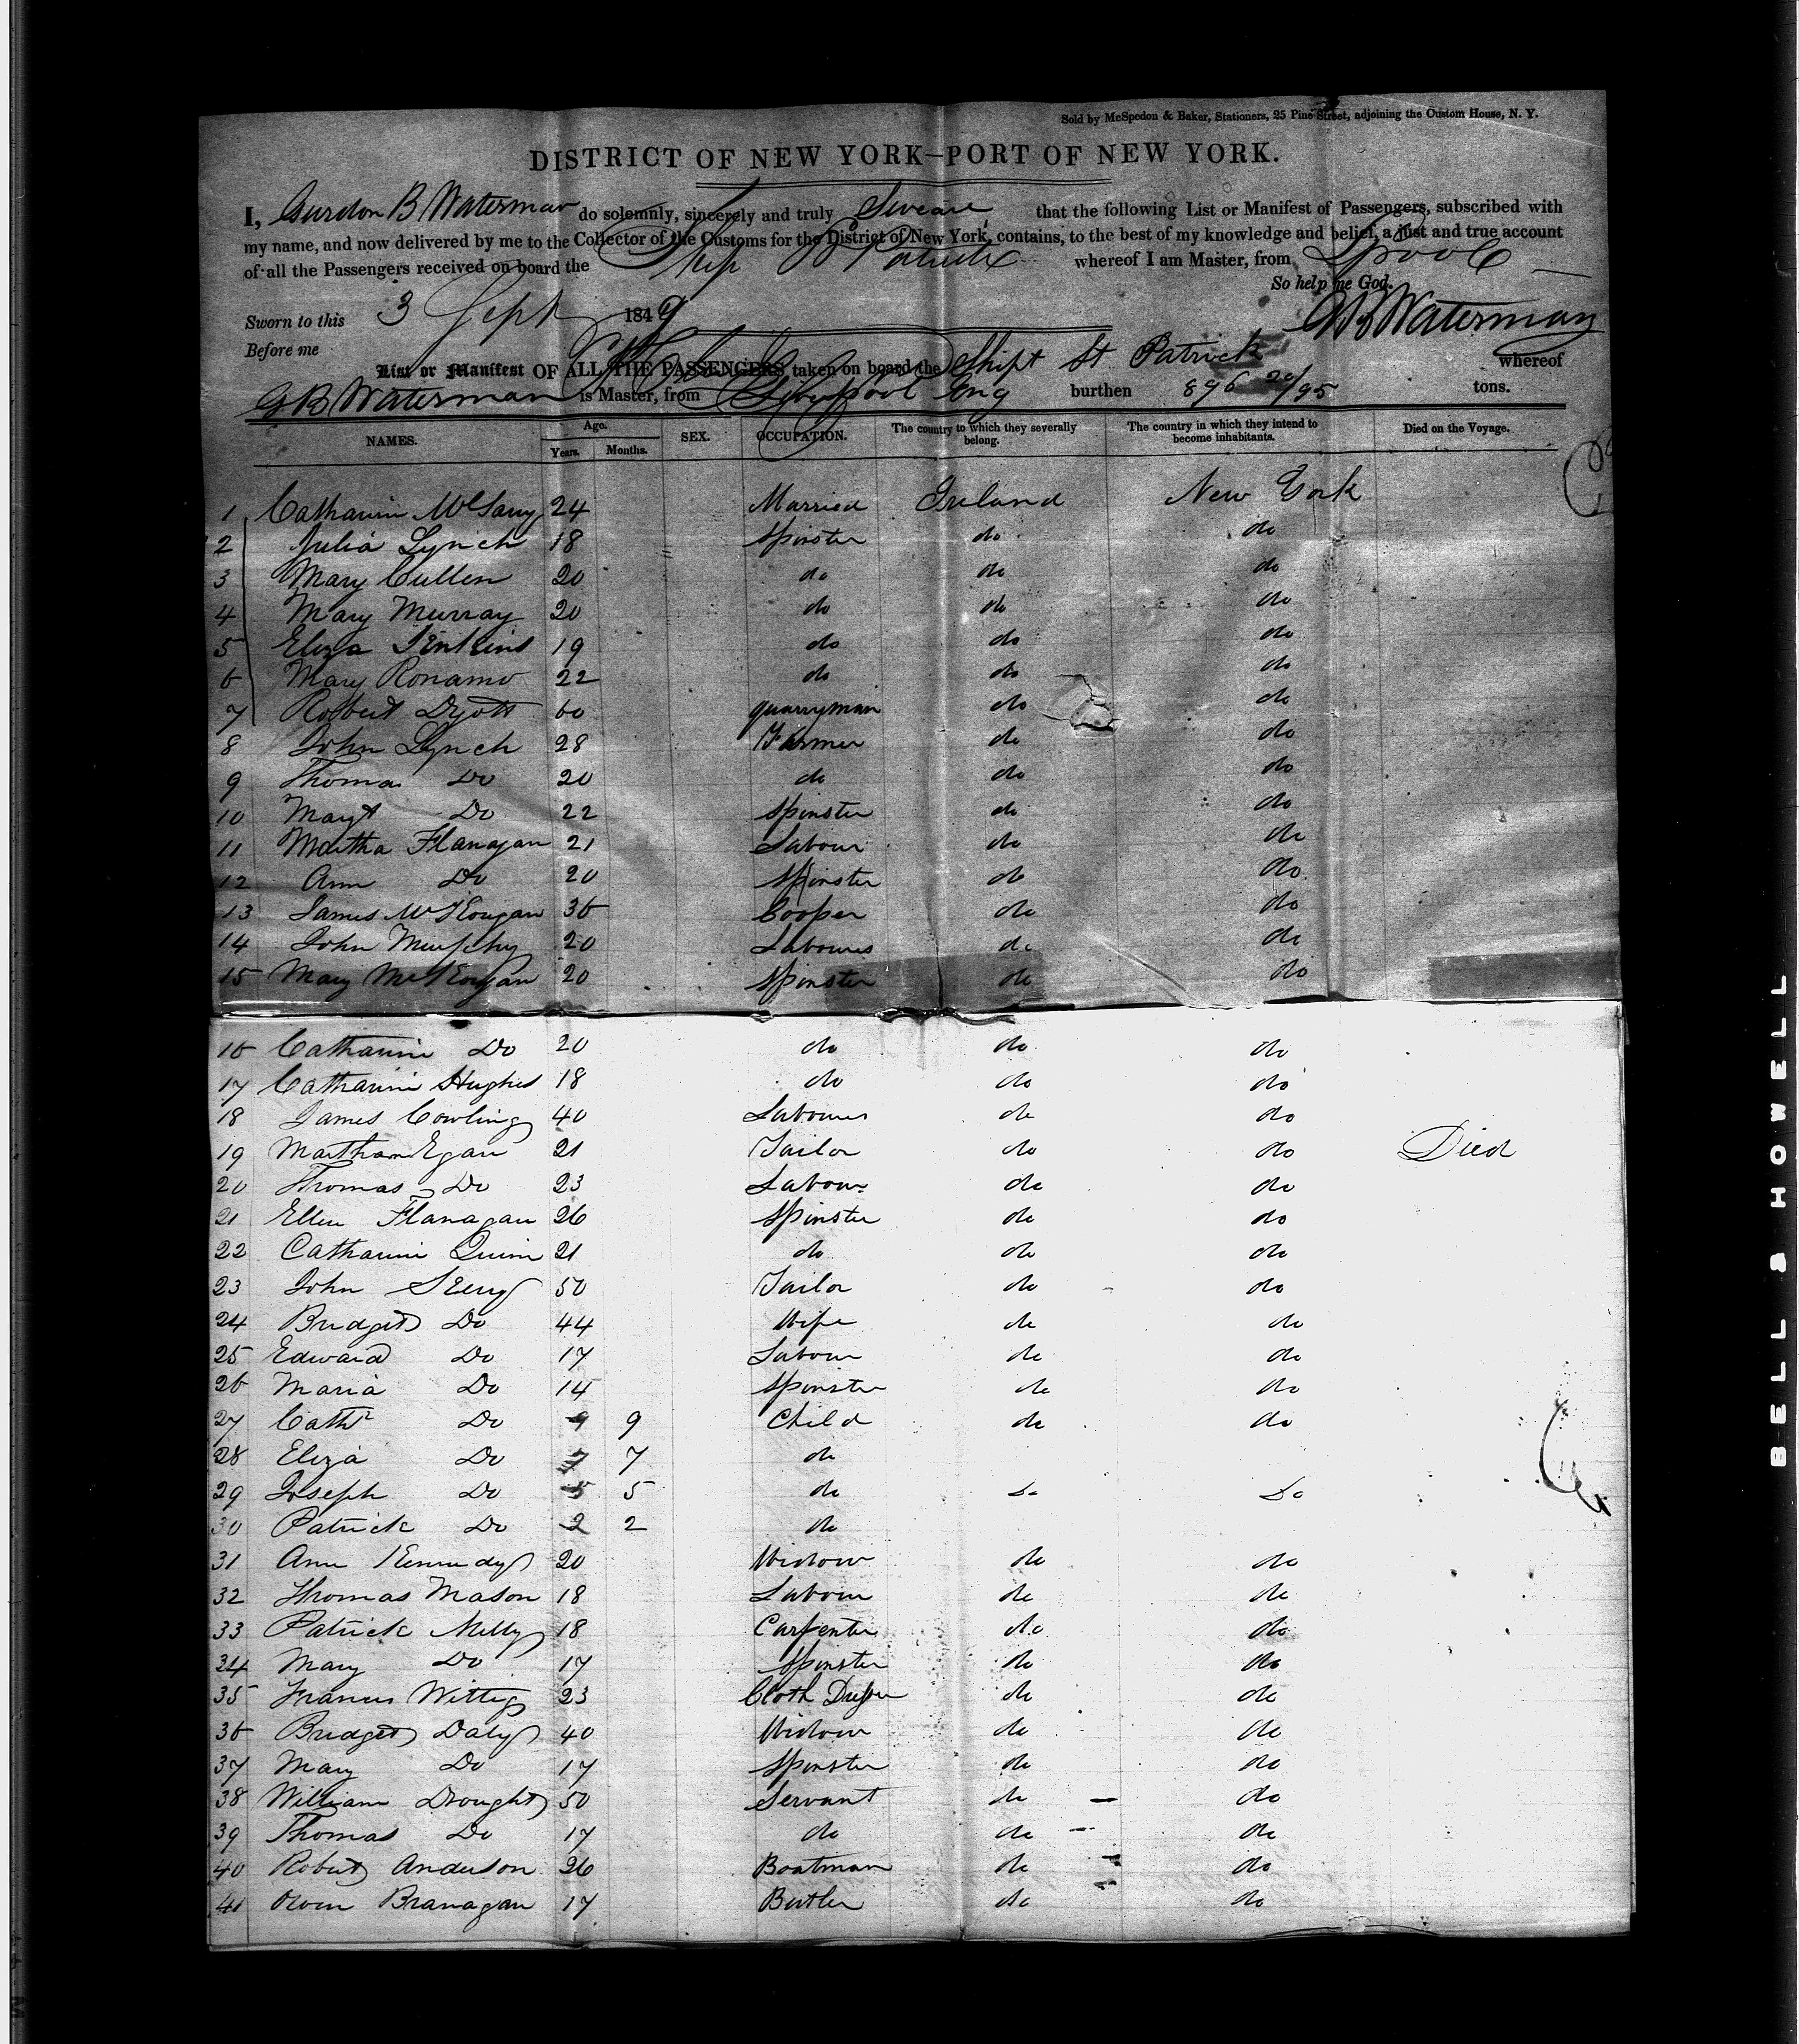 Sold by McSpedon & Baker, Stationers, 25 Pine Street, adjoining the Custom House, N. Y.
DISTRICT OF NEW YORK—PORT OF NEW YORK.
I, Gurdon B Waterman do solemnly, sincerely and truly Swear that the following List or Manifest of Passengers, subscribed with
my name, and now delivered by me to the Collector of the Customs for the District of New York, contains, to the best of my knowledge and belief, a just and true account
of all the Passengers received on board the Ship St Patrick whereof I am Master, from Lpool
So help me God.
Sworn to this 3 Sept 1849 GB Waterman
Before me
List or Manifest OF ALL THE PASSENGERS taken on board the Ship St Patrick whereof
GB Waterman is Master, from Liverpool Eng burthen 896 20/95 tons.
NAMES. Age. Years. Months. SEX. OCCUPATION. The country to which they severally belong. The country in which they intend to become inhabitants. Died on the Voyage.
1 Catharin 24 Married Ireland New York
2 Julia Lynch 18 Spinster do do
3 Mary Cullen 20 do do do
4 Mary Murray 20 do do do
5 Eliza Jenkins 19 do do do
6 Mary Ronamo 22 do do do
7 Robert Dyott 60 quarryman do do
8 John Lynch 28 Farmer do do
9 Thomas Do 20 do do do
10 Margt Do 22 Spinster do do
11 Martha Flanagan 21 Labour do do
12 Ann Do 20 Spinster do do
13 James McKeugan 36 Cooper do do
14 John Murphy 20 Labourer do do
15 Mary McKeugan 20 Spinster do do
16 Catharin Do 20 do do do
17 Catharin Hughes 18 do do do
18 James Cowling 40 Labourer do do
19 Egan 21 Tailor do do Died
20 Thomas Do 23 Labour do do
21 Ellen Flanagan 26 Spinster do do
22 Catharin Quinn 21 do do do
23 John 50 Tailor do do
24 Bridget Do 44 Wife do do
25 Edward Do 17 Labour do do
26 Maria Do 14 Spinster do do
27 Cath Do 9 9 Child do do
28 Eliza Do 7 7 do
29 Joseph Do 5 5 do Do Do
30 Patrick Do 2 2 do
31 Ann Kennedy 20 Widow do do
32 Thomas Mason 18 Labour do do
33 Patrick Melly 18 Carpenter do do
34 Mary Do 17 Spinster do do
35 Francis Wittig 23 Cloth Dresser do do
36 Bridget Daly 40 Widow do do
37 Mary Do 17 Spinster do do
38 William Drought 50 Servant do do
39 Thomas Do 17 do do do
40 Robert Anderson 26 Boatman do do
41 Owen Branagan 17 Butler do do
BELL & HOWELL